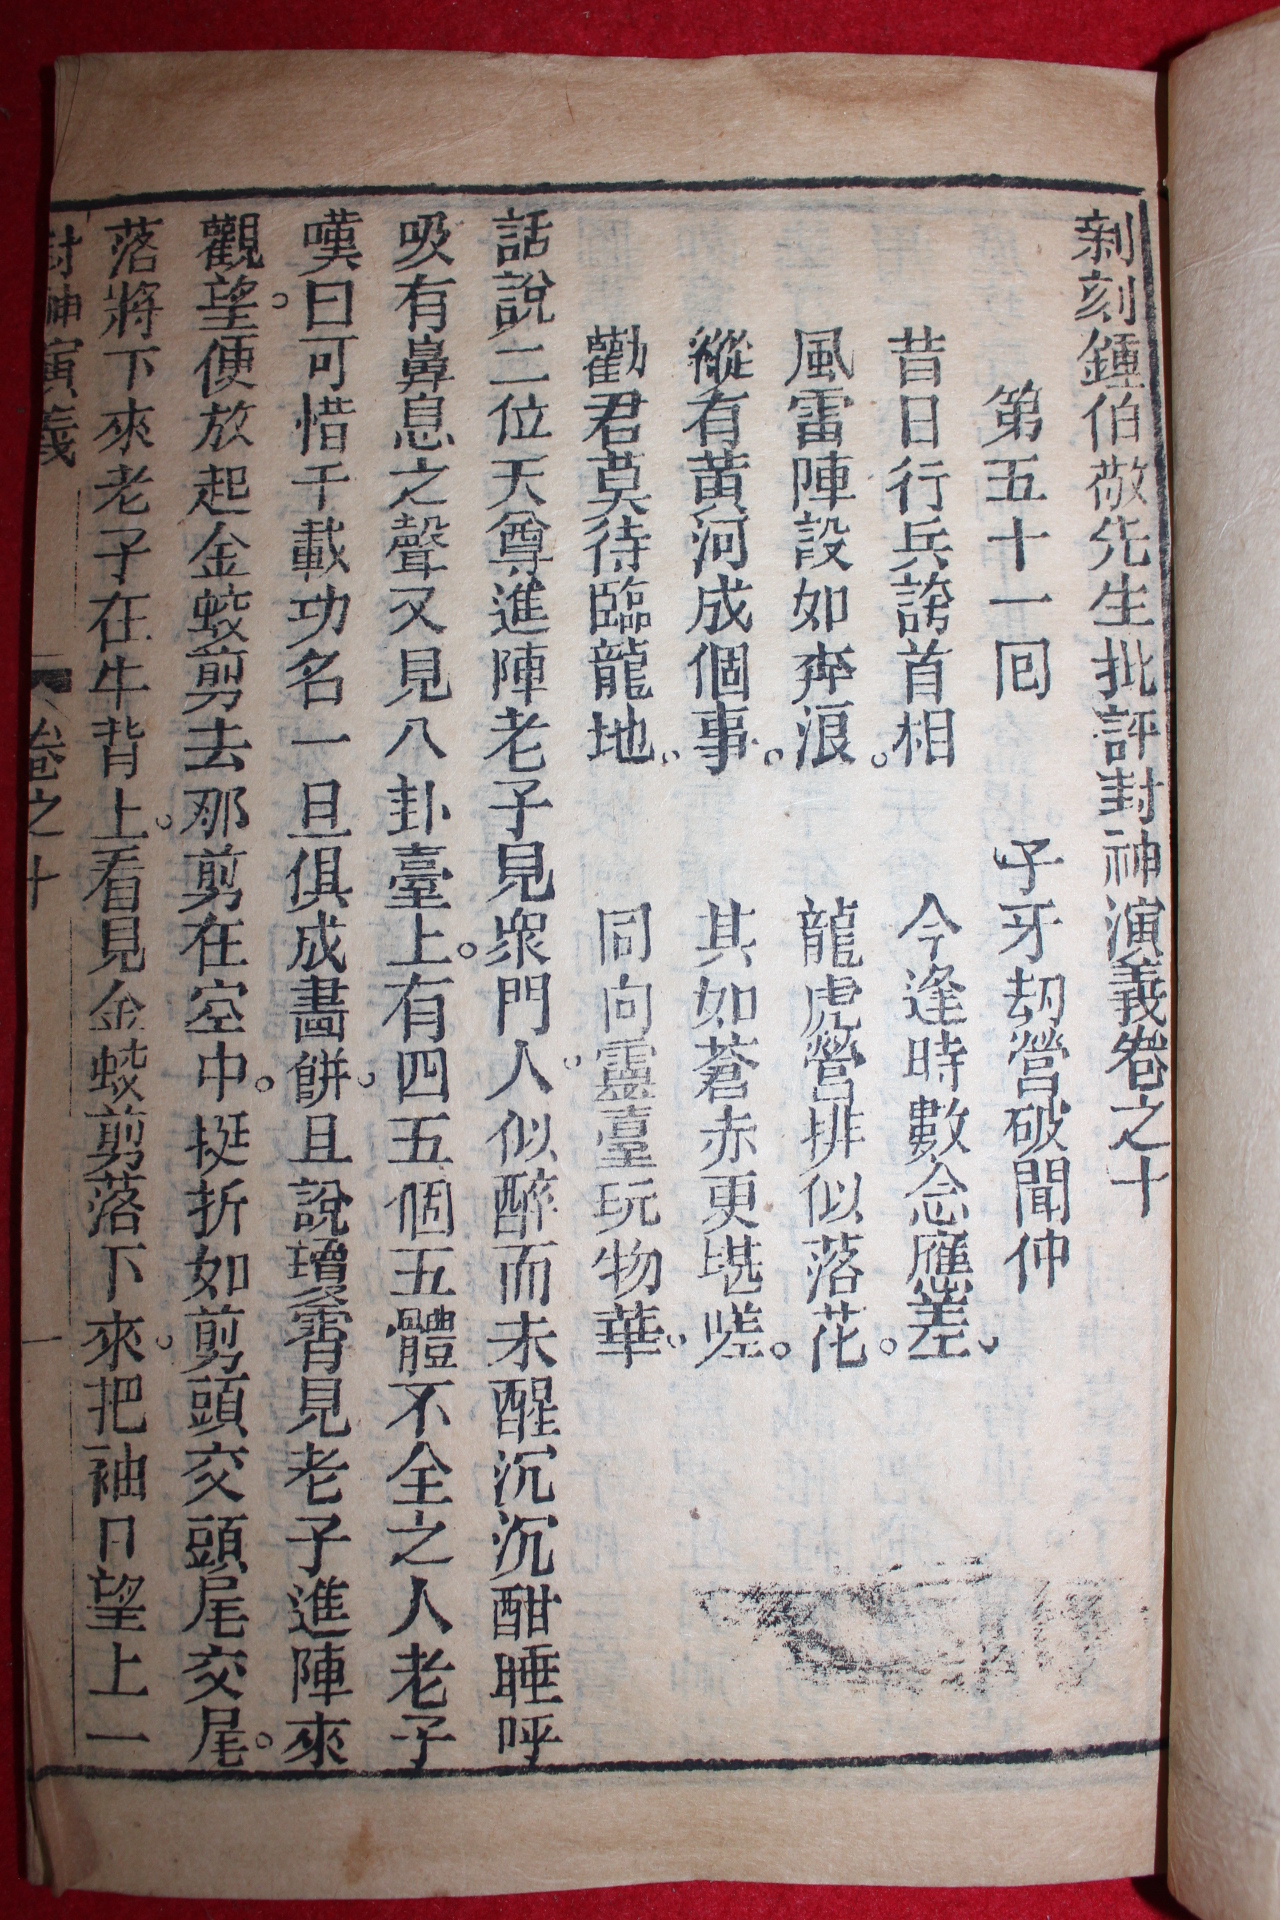 新刻鍾伯敬先生批評封神演義卷之十
第五十一囘　子牙刼營破聞仲
昔日行兵誇首相　今逢時數念應差
風雷陣設如奔浪　龍虎營排似落花
縱有黃河成個事　其如蒼赤更堪嗟
勸君莫待臨龍地　同向靈臺玩物華
話說二位天尊進陣老子見衆門人似醉而未醒沉沉酣睡呼
吸有鼻息之聲又見八卦臺上有四五個五體不全之人老子
嘆曰可惜千載功名一旦俱成畵餅且說瓊霄見老子進陣來
觀望便放起金蛟剪去那剪在空中挺折如剪頭交頭尾交尾
落將下來老子在牛背上看見金蛟剪落下來把袖口望上一
封神演義　卷之十　一